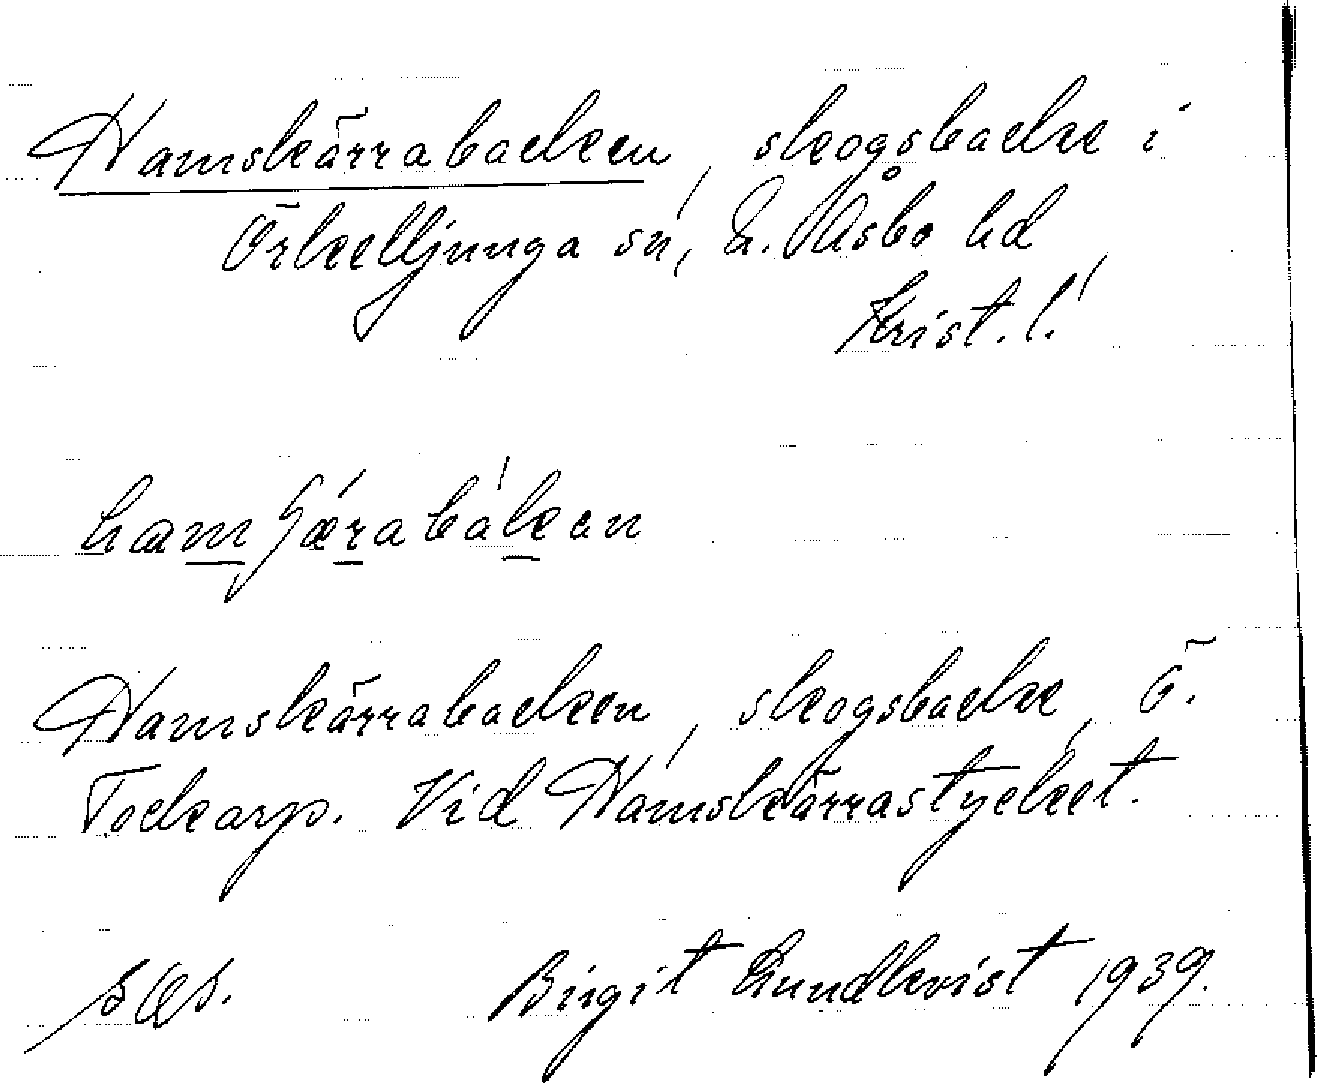 Hamskärrabacken, skogsbacke i
Örkelljunga sn, N. Åsbo hd,
Krist. l.
hamʃǽrabákan
Hamskärrabacken, skogsbacke, Ö.
Tockarp. Vid Hamskärrastycket.
Birgit Lundkvist 1939.